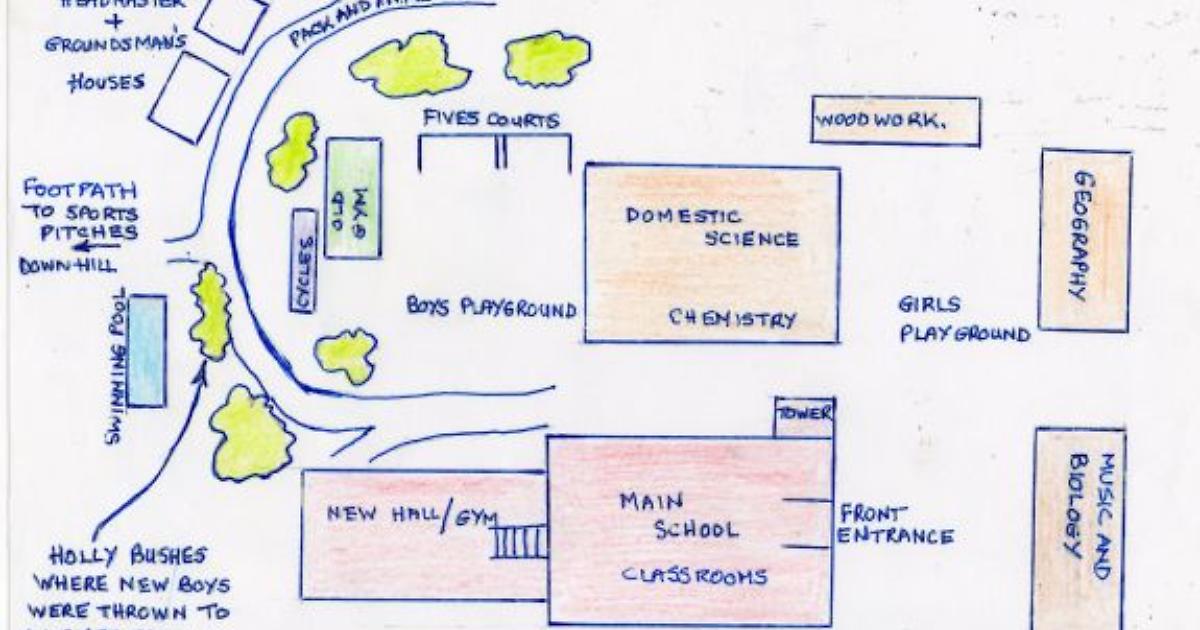 HEADMASTER
+
GROUNDSMAN'S
HOUSES
PACK AND
FIVES COURTS
WOODWORK.
FOOTPATH
TO SPORTS
PITCHES
DOWN-HILL
OLD
GYM
CYCLES
DOMESTIC
SCIENCE
CHEMISTRY
GEOGRAPHY
BOYS PLAYGROUND
GIRLS
PLAYGROUND
SWIMMING POOL
TOWER
NEW HALL/GYM
MAIN
SCHOOL
CLASSROOMS
FRONT
ENTRANCE
MUSIC AND
BIOLOGY
HOLLY BUSHES
WHERE NEW BOYS
WERE THROWN TO